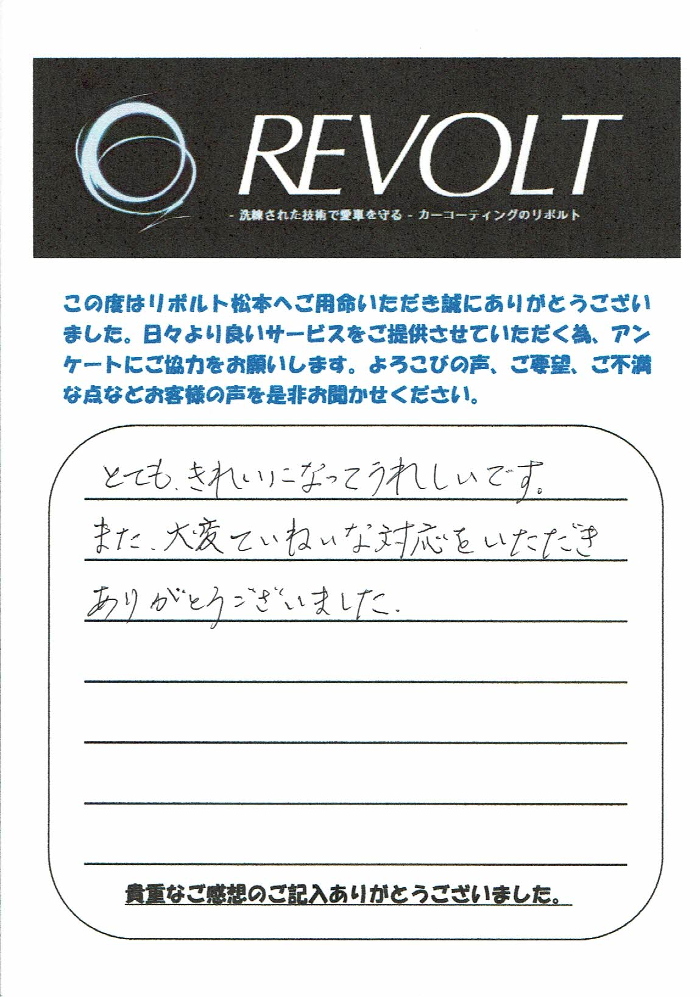 REVOLT
- 洗練された技術で愛車を守る - カーコーティングのリボルト
この度はリボルト松本へご用命いただき誠にありがとうござい
ました。日々より良いサービスをご提供させていただく為、アン
ケートにご協力をお願いします。よろこびの声、ご要望、ご不満
な点などお客様の声を是非お聞かせください。
とても、きれいになってうれしいです。
また、大変ていねいな対応をいただき
ありがとうございました.
貴重なご感想のご記入ありがとうございました。